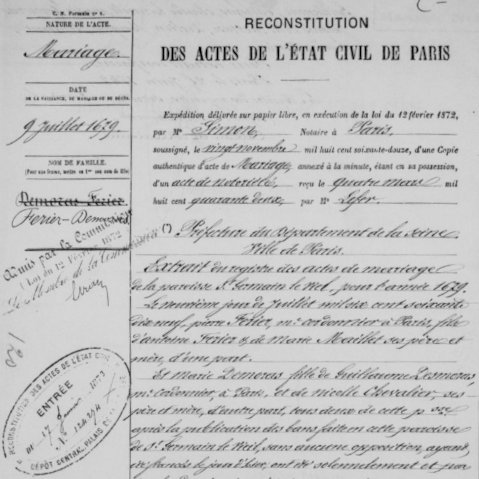 C. N. Formule nº 1.
NATURE DE L'ACTE.
Mariage
DATE
DE LA NAISSANCE, DU MARIAGE OU DU DÉCÈS.
9 Juillet 1679.
NOM DE FAMILLE.
(Pour une femme, mettre en 1re ligne son nom de fille)
Demoras Ferier
Ferier-Demoras
Admis par la Commission
(Loi du 12 Février 1872)
Le Membre de la Commission
RECONSTITUTION DES ACTES DE L'ÉTAT CIVIL
ENTRÉE
DÉPÔT CENTRAL, PALAIS
RECONSTITUTION
DES ACTES DE L'ÉTAT CIVIL DE PARIS
Expédition délivrée sur papier libre, en exécution de la loi du 12 février 1872,
par Me Simon Notaire à Paris,
soussigné, le vingt novembre mil huit cent soixante-douze, d'une Copie
authentique d'acte de Mariage, annexé à la minute, étant en sa possession,
d'un acte de notoriété, reçu le quatre mars mil
huit cent quarante deux, par Me Lefer.
(1) Préfecture du Département de la Seine
Ville de Paris.
Extrait du registre des actes de mariage
de la paroisse St Germain le Viel, pour l'année 1679.
Le neuvième jour de Juillet mil six cent soixante
dix neuf, pierre Ferier, me cordonnier à Paris, fils
d'antoine Ferier & de marie Maillet ses père et
mère, d'une part.
Et marie Demoras fille de Guillaume Desmoras,
me cordonnier, à Paris, et de nicolle Chevalier, ses
père et mère, d'autre part, tous deux de cette p sse
après la publication des bans faite en cette paroisse
de St Germain le Vieil, sans aucune opposition, ayant
été fiancés le jour d'hier, ont été solennellement et par